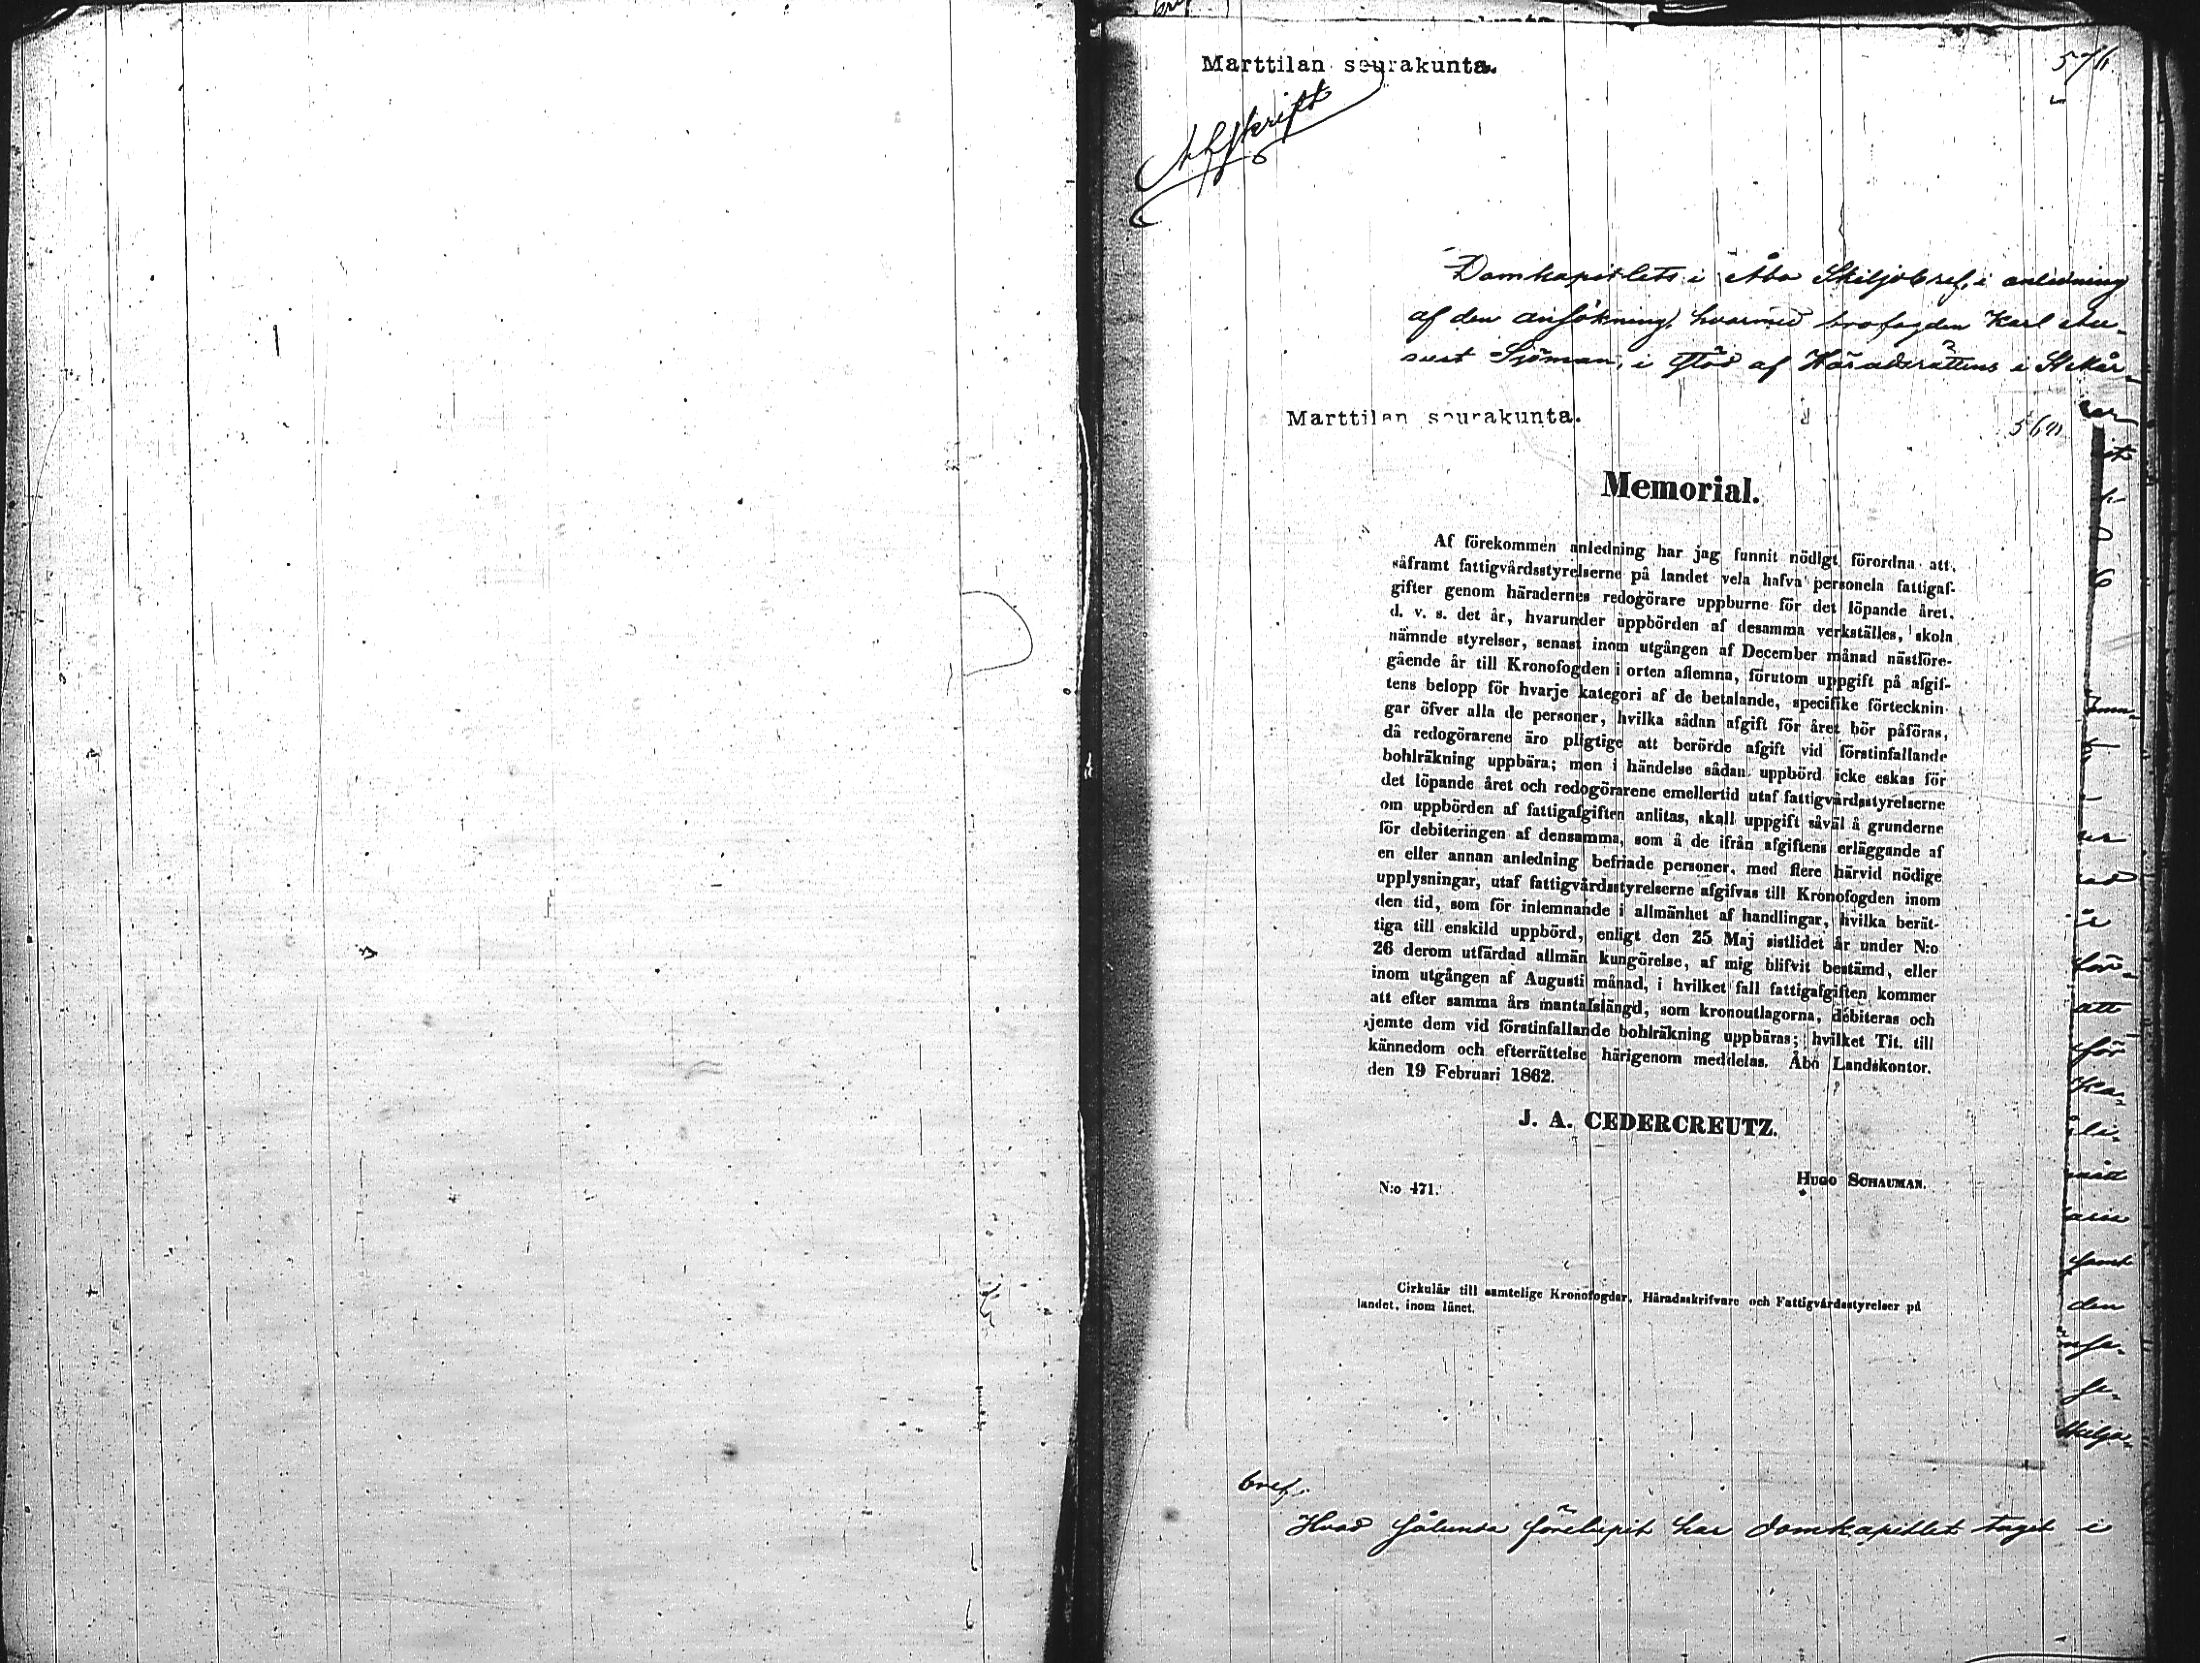 Marttilan seurakunta.
Afskrift
Domkapitlets i Åbo Skiljobref, i anledning
af den ansökning, hvarmed brofogden Karl Au-
gust Sjöman, i stöd af Häradsrättens i St Mår-
Marttilan seurakunta.
Memorial.
Af förekommen anledning har jag funnit nödigt förordna att,
såframt fattigvårdsstyrelserne på landet vela hafva personela fattigaf-
gifter genom häradernes redogörare uppburne för det löpande året,
d. v. s. det år, hvarunder uppbörden af desamma verkställes, skola
nämnde styrelser, senast inom utgången af December månad nästföre-
gående år till Kronofogden i orten aflemna, förutom uppgift på afgif-
tens belopp för hvarje kategori af de betalande, specifike förtecknin-
gar öfver alla de personer, hvilka sådan afgift för året bör påföras,
då redogörarene äro pligtige att berörde afgift vid förstinfallande
bohlräkning uppbära; men i händelse sådan uppbörd icke eskas för
det löpande året och redogörarene emellertid utaf fattigvårdsstyrelserne
om uppbörden af fattigafgiften anlitas, skall uppgift såväl å grunderne
för debiteringen af densamma, som å de ifrån afgiftens erläggande af
en eller annan anledning befriade personer, med flere härvid nödige
upplysningar, utaf fattigvårdsstyrelserne afgifvas till Kronofogden inom
den tid, som för inlemnande i allmänhet af handlingar, hvilka berät-
tiga till enskild uppbörd, enligt den 25 Maj sistlidet år under N:o
26 derom utfärdad allmän kungörelse, af mig blifvit bestämd, eller
inom utgången af Augusti månad, i hvilket fall fattigafgiften kommer
att efter samma års mantalslängd, som kronoutlagorna, debiteras och
jemte dem vid förstinfallande bohlräkning uppbäras; hvilket Tit. till
kännedom och efterrättelse härigenom meddelas. Åbo Landskontor,
den 19 Februari 1862.
J. A. CEDERCREUTZ.
HUGO SCHAUMAN.
N:o 471.
Cirkulär till samtelige Kronofogdar, Häradsskrifvare och Fattigvårdsstyrelser på
landet, inom länet.
att
för
den
Skiljo-
bref.
Hvad sålunda förelupit har domkapitlet tagit i